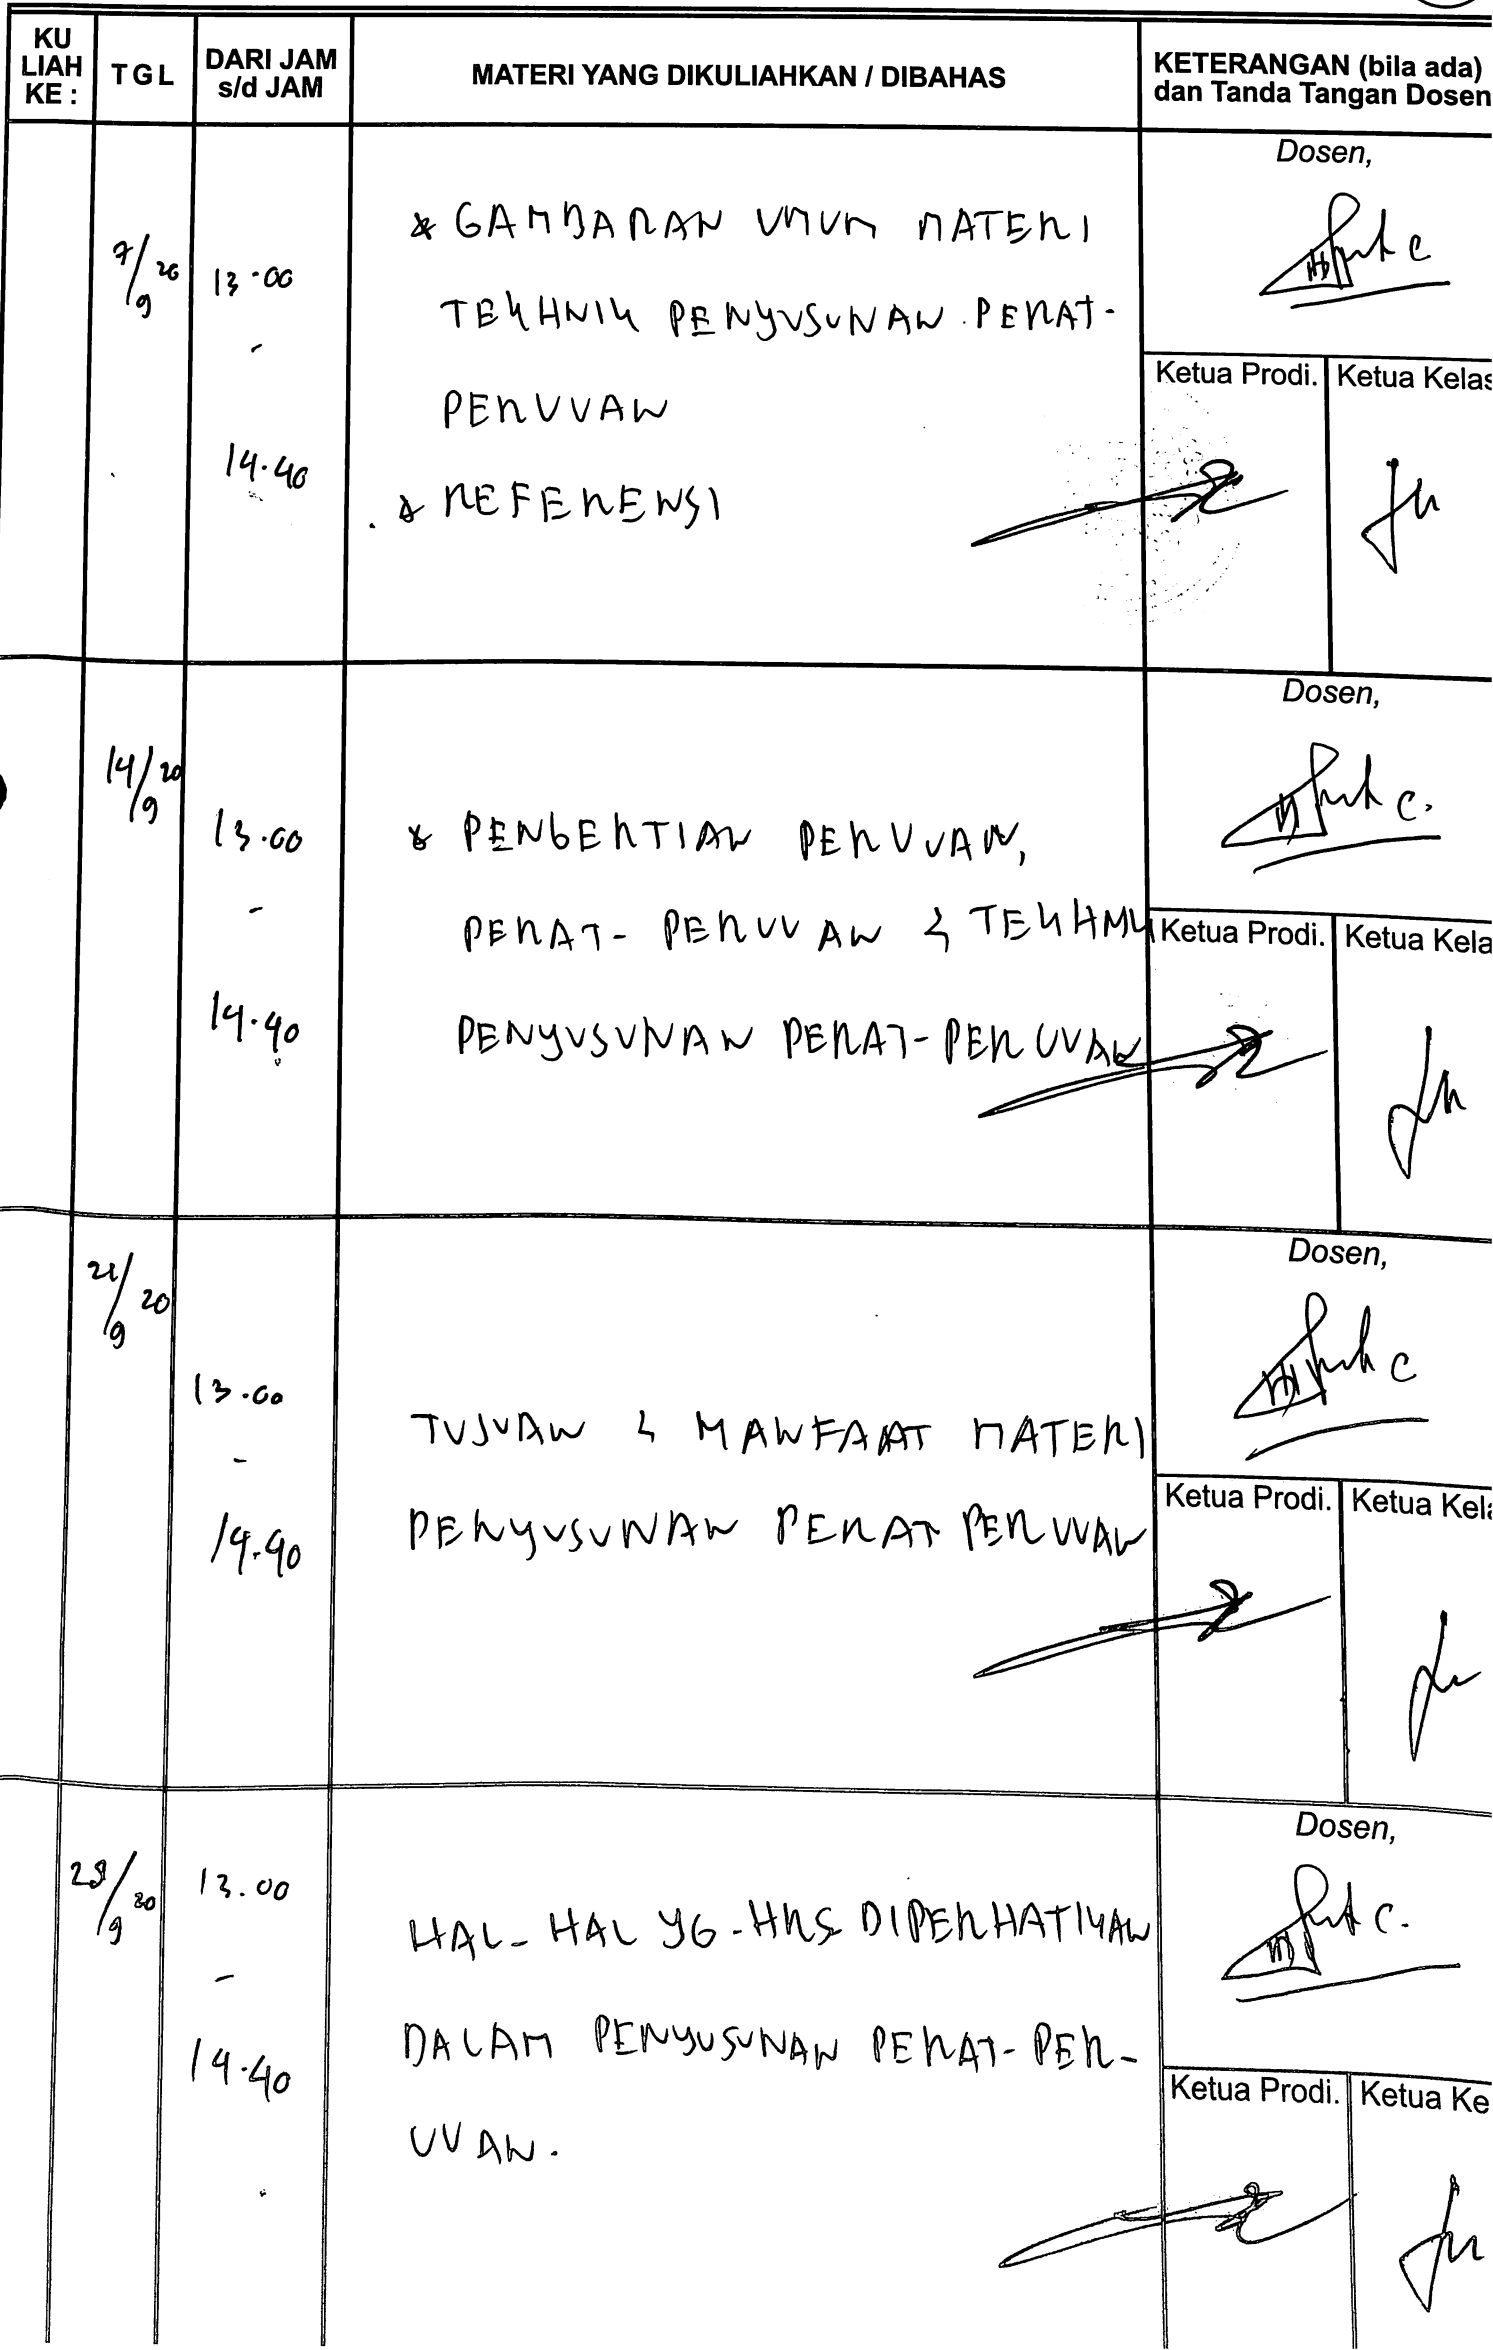 KU LIAH KE :
TGL
DARI JAM s/d JAM
MATERI YANG DIKULIAHKAN / DIBAHAS
KETERANGAN (bila ada) dan Tanda Tangan Dosen
7/9 20
13.00
-
14.40
* GAMBARAN UMUM MATERI
TEKHNIK PENYUSUNAN PERAT-
PERUUAN
* REFERENSI
Dosen,
Ketua Prodi.
Ketua Kelas
14/9 20
13.00
-
14.40
* PENGERTIAN PERUUAN,
PERAT- PERUUAN & TEKHNIK
PENYUSUNAN PERAT-PERUUAN
Dosen,
Ketua Prodi.
Ketua Kela
21/9 20
13.00
-
14.40
TUJUAN & MANFAAT MATERI
PENYUSUNAN PERAT PERUUAN
Dosen,
Ketua Prodi.
Ketua Kela
28/9 20
13.00
-
14.40
HAL-HAL YG-HRS DIPERHATIKAN
DALAM PENYUSUNAN PERAT-PER-
UUAN.
Dosen,
Ketua Prodi.
Ketua Ke